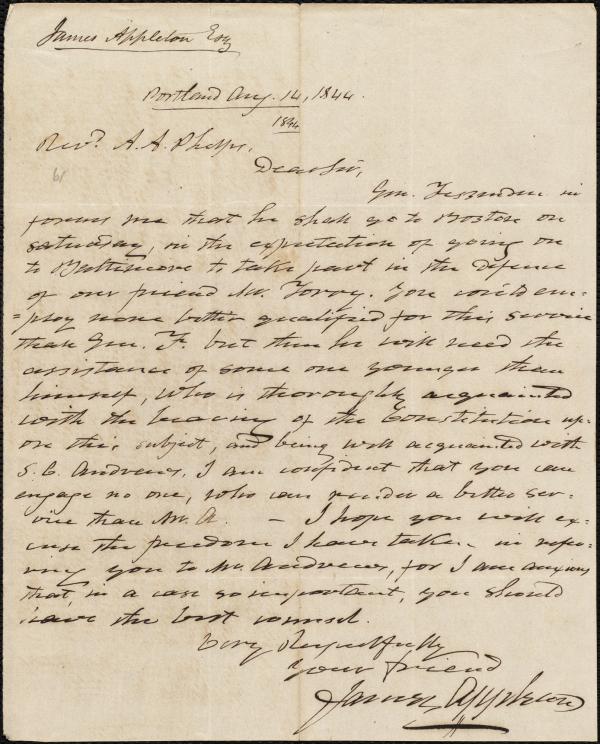 James Appleton Esq
Portland Aug. 14, 1844.
1844
Revd. A. A. Phelps,
61
Dear Sir,
Gen. Fessenden in
forms me that he shall go to Boston on
saturday, in the expectation of going on
to Baltimore to take part in the defence
of our friend Mr. Torry. You could em-
=ploy none better qualified for this service
than Gen. F. but then he will need the
assistance of some one younger than
himself, who is thoroughly acquainted
with the bearing of the Constitution up-
on this subject, and being well acquainted with
S. C. Andrews, I am confident that you can
engage no one, who can render a better ser-
vice than Mr. A. — I hope you will ex-
cuse the freedom I have taken in refer-
ring you to Mr. Andrews, for I am anxious
that, in a case so important, you should
have the best counsel.
Very Respectfully
Your friend
James Appleton